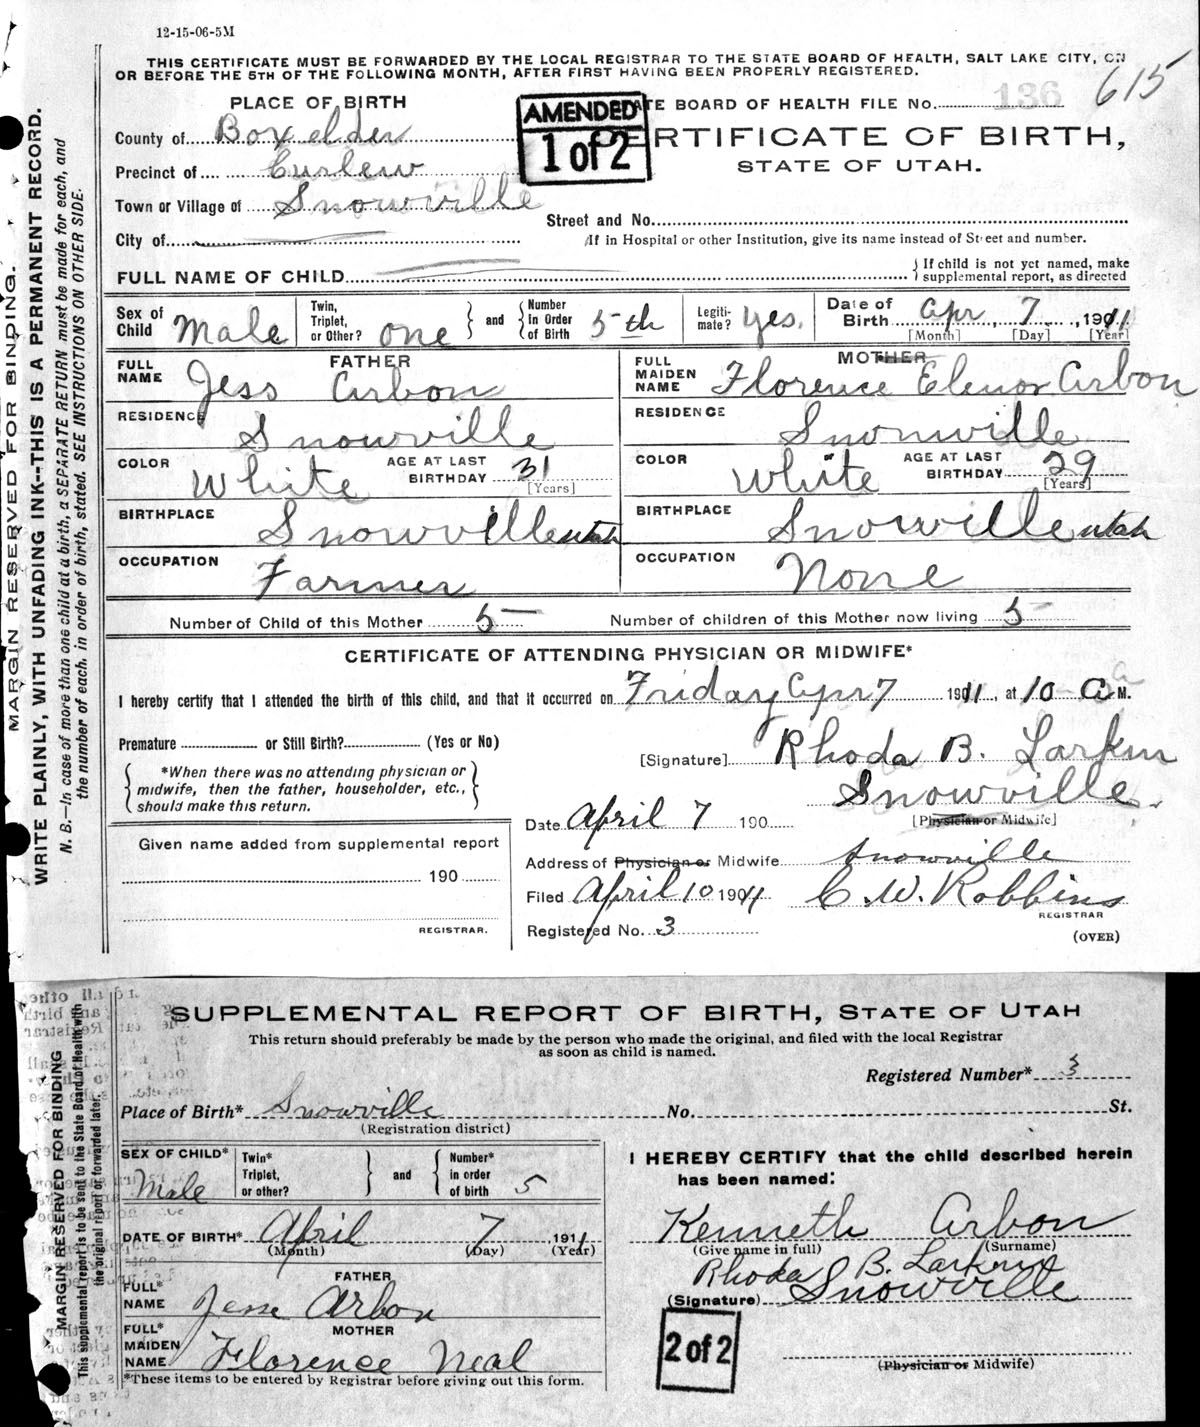 12-15-06-5M
THIS CERTIFICATE MUST BE FORWARDED BY THE LOCAL REGISTRAR TO THE STATE BOARD OF HEALTH, SALT LAKE CITY, ON
OR BEFORE THE 5TH OF THE FOLLOWING MONTH, AFTER FIRST HAVING BEEN PROPERLY REGISTERED.
MARGIN RESERVED FOR BINDING.
WRITE PLAINLY, WITH UNFADING INK--THIS IS A PERMANENT RECORD.
N. B.—In case of more than one child at a birth, a SEPARATE RETURN must be made for each, and
the number of each, in order of birth, stated. SEE INSTRUCTIONS ON OTHER SIDE.
PLACE OF BIRTH
County of Boxelder
Precinct of Curlew
Town or Village of Snowville
City of
AMENDED
1 of 2
TE BOARD OF HEALTH FILE No. 136 615
CERTIFICATE OF BIRTH,
STATE OF UTAH.
Street and No.
If in Hospital or other Institution, give its name instead of Street and number.
FULL NAME OF CHILD
{ If child is not yet named, make
supplemental report, as directed
Sex of Child Male
Twin, Triplet, or Other? one } and { Number in Order of Birth 5th
Legitimate? Yes.
Date of Birth Apr 7, 1911
[Month] [Day] [Year]
FATHER
FULL NAME Jess Arbon
RESIDENCE Snowville
COLOR White AGE AT LAST BIRTHDAY 31
[Years]
BIRTHPLACE Snowville utah
OCCUPATION Farmer
MOTHER
FULL MAIDEN NAME Florence Elenor Arbon
RESIDENCE Snowville
COLOR White AGE AT LAST BIRTHDAY 29
[Years]
BIRTHPLACE Snowville utah
OCCUPATION None
Number of Child of this Mother 5 Number of children of this Mother now living 5
CERTIFICATE OF ATTENDING PHYSICIAN OR MIDWIFE*
I hereby certify that I attended the birth of this child, and that it occurred on Friday Apr 7 1911, at 10 a M.
Premature or Still Birth? (Yes or No)
{ *When there was no attending physician or
midwife, then the father, householder, etc.,
should make this return. }
[Signature] Rhoda B. Larkin
Snowville.
[Physician or Midwife]
Date April 7 190
Given name added from supplemental report
190
REGISTRAR.
Address of Physician or Midwife Snowville
Filed April 10 1911 C. W. Robbins
REGISTRAR
Registered No. 3
(OVER)
MARGIN RESERVED FOR BINDING
This supplemental report is to be sent to the State Board of Health with
the original report or forwarded later.
SUPPLEMENTAL REPORT OF BIRTH, STATE OF UTAH
This return should preferably be made by the person who made the original, and filed with the local Registrar
as soon as child is named.
Registered Number* 3
Place of Birth* Snowville No. St.
(Registration district)
SEX OF CHILD* Male
Twin* Triplet, or other? } and { Number* in order of birth 5
DATE OF BIRTH* April 7 1911
(Month) (Day) (Year)
FATHER
FULL* NAME Jesse Arbon
MOTHER
FULL* MAIDEN NAME Florence Neal
*These items to be entered by Registrar before giving out this form.
I HEREBY CERTIFY that the child described herein
has been named:
Kenneth Arbon
(Give name in full) (Surname)
Rhoda B. Larkin
(Signature) Snowville
2 of 2
(Physician or Midwife)